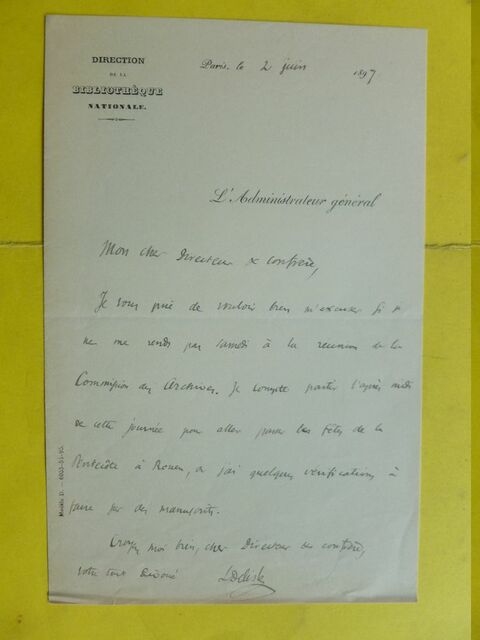 DIRECTION
DE LA
BIBLIOTHÈQUE
NATIONALE.
Paris, le 2 juin 1897
L'Administrateur général
Mon cher Directeur & confrère,
Je vous prie de vouloir bien m'excuser si je
ne me rends pas samedi à la réunion de la
Commission des Archives. Je compte partir l'après midi
de cette journée pour aller passer les fêtes de la
Pentecôte à Rouen, où j'ai quelques vérifications à
faire sur des manuscrits.
Croyez moi bien, cher Directeur & confrère,
votre tout dévoué
LDelisle